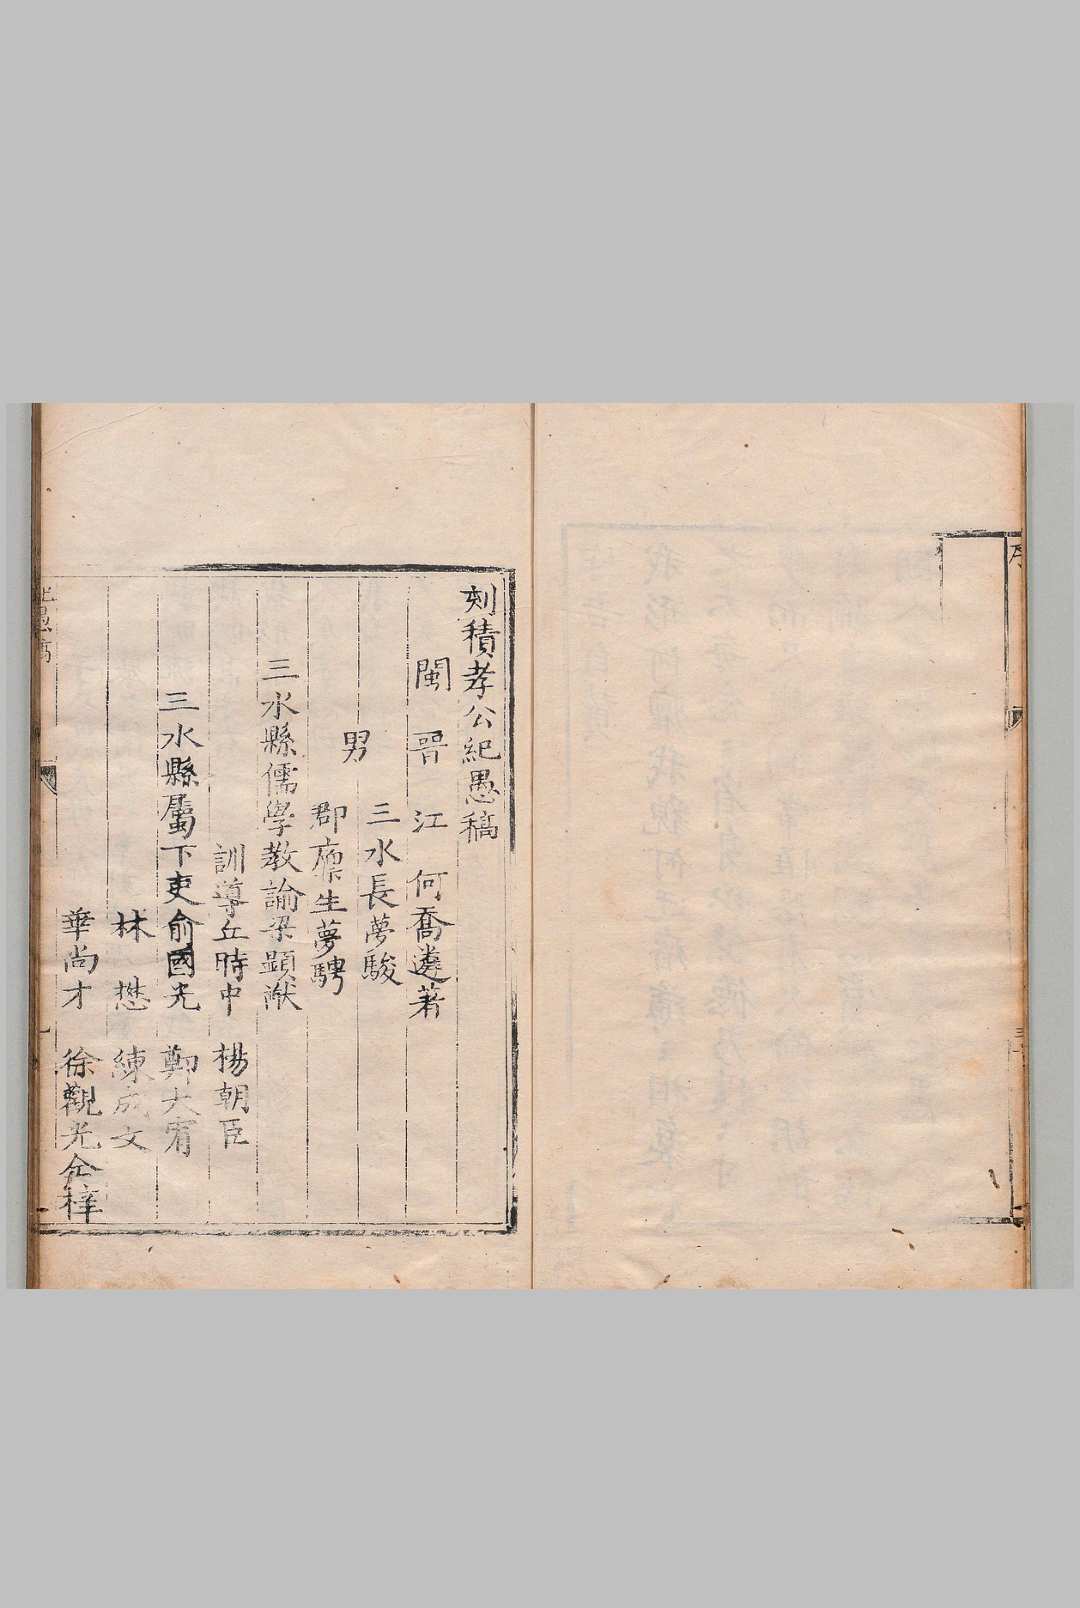 序
刻積孝公紀愚稿
閩晉江何喬遴著
男
三水長夢駿
郡廩生夢騁
三水縣儒學教諭梁顯猷
訓導丘時中 楊朝臣
三水縣屬下吏俞國光 鄭大甯
林懋 練成文
華尚才 徐觀光仝梓